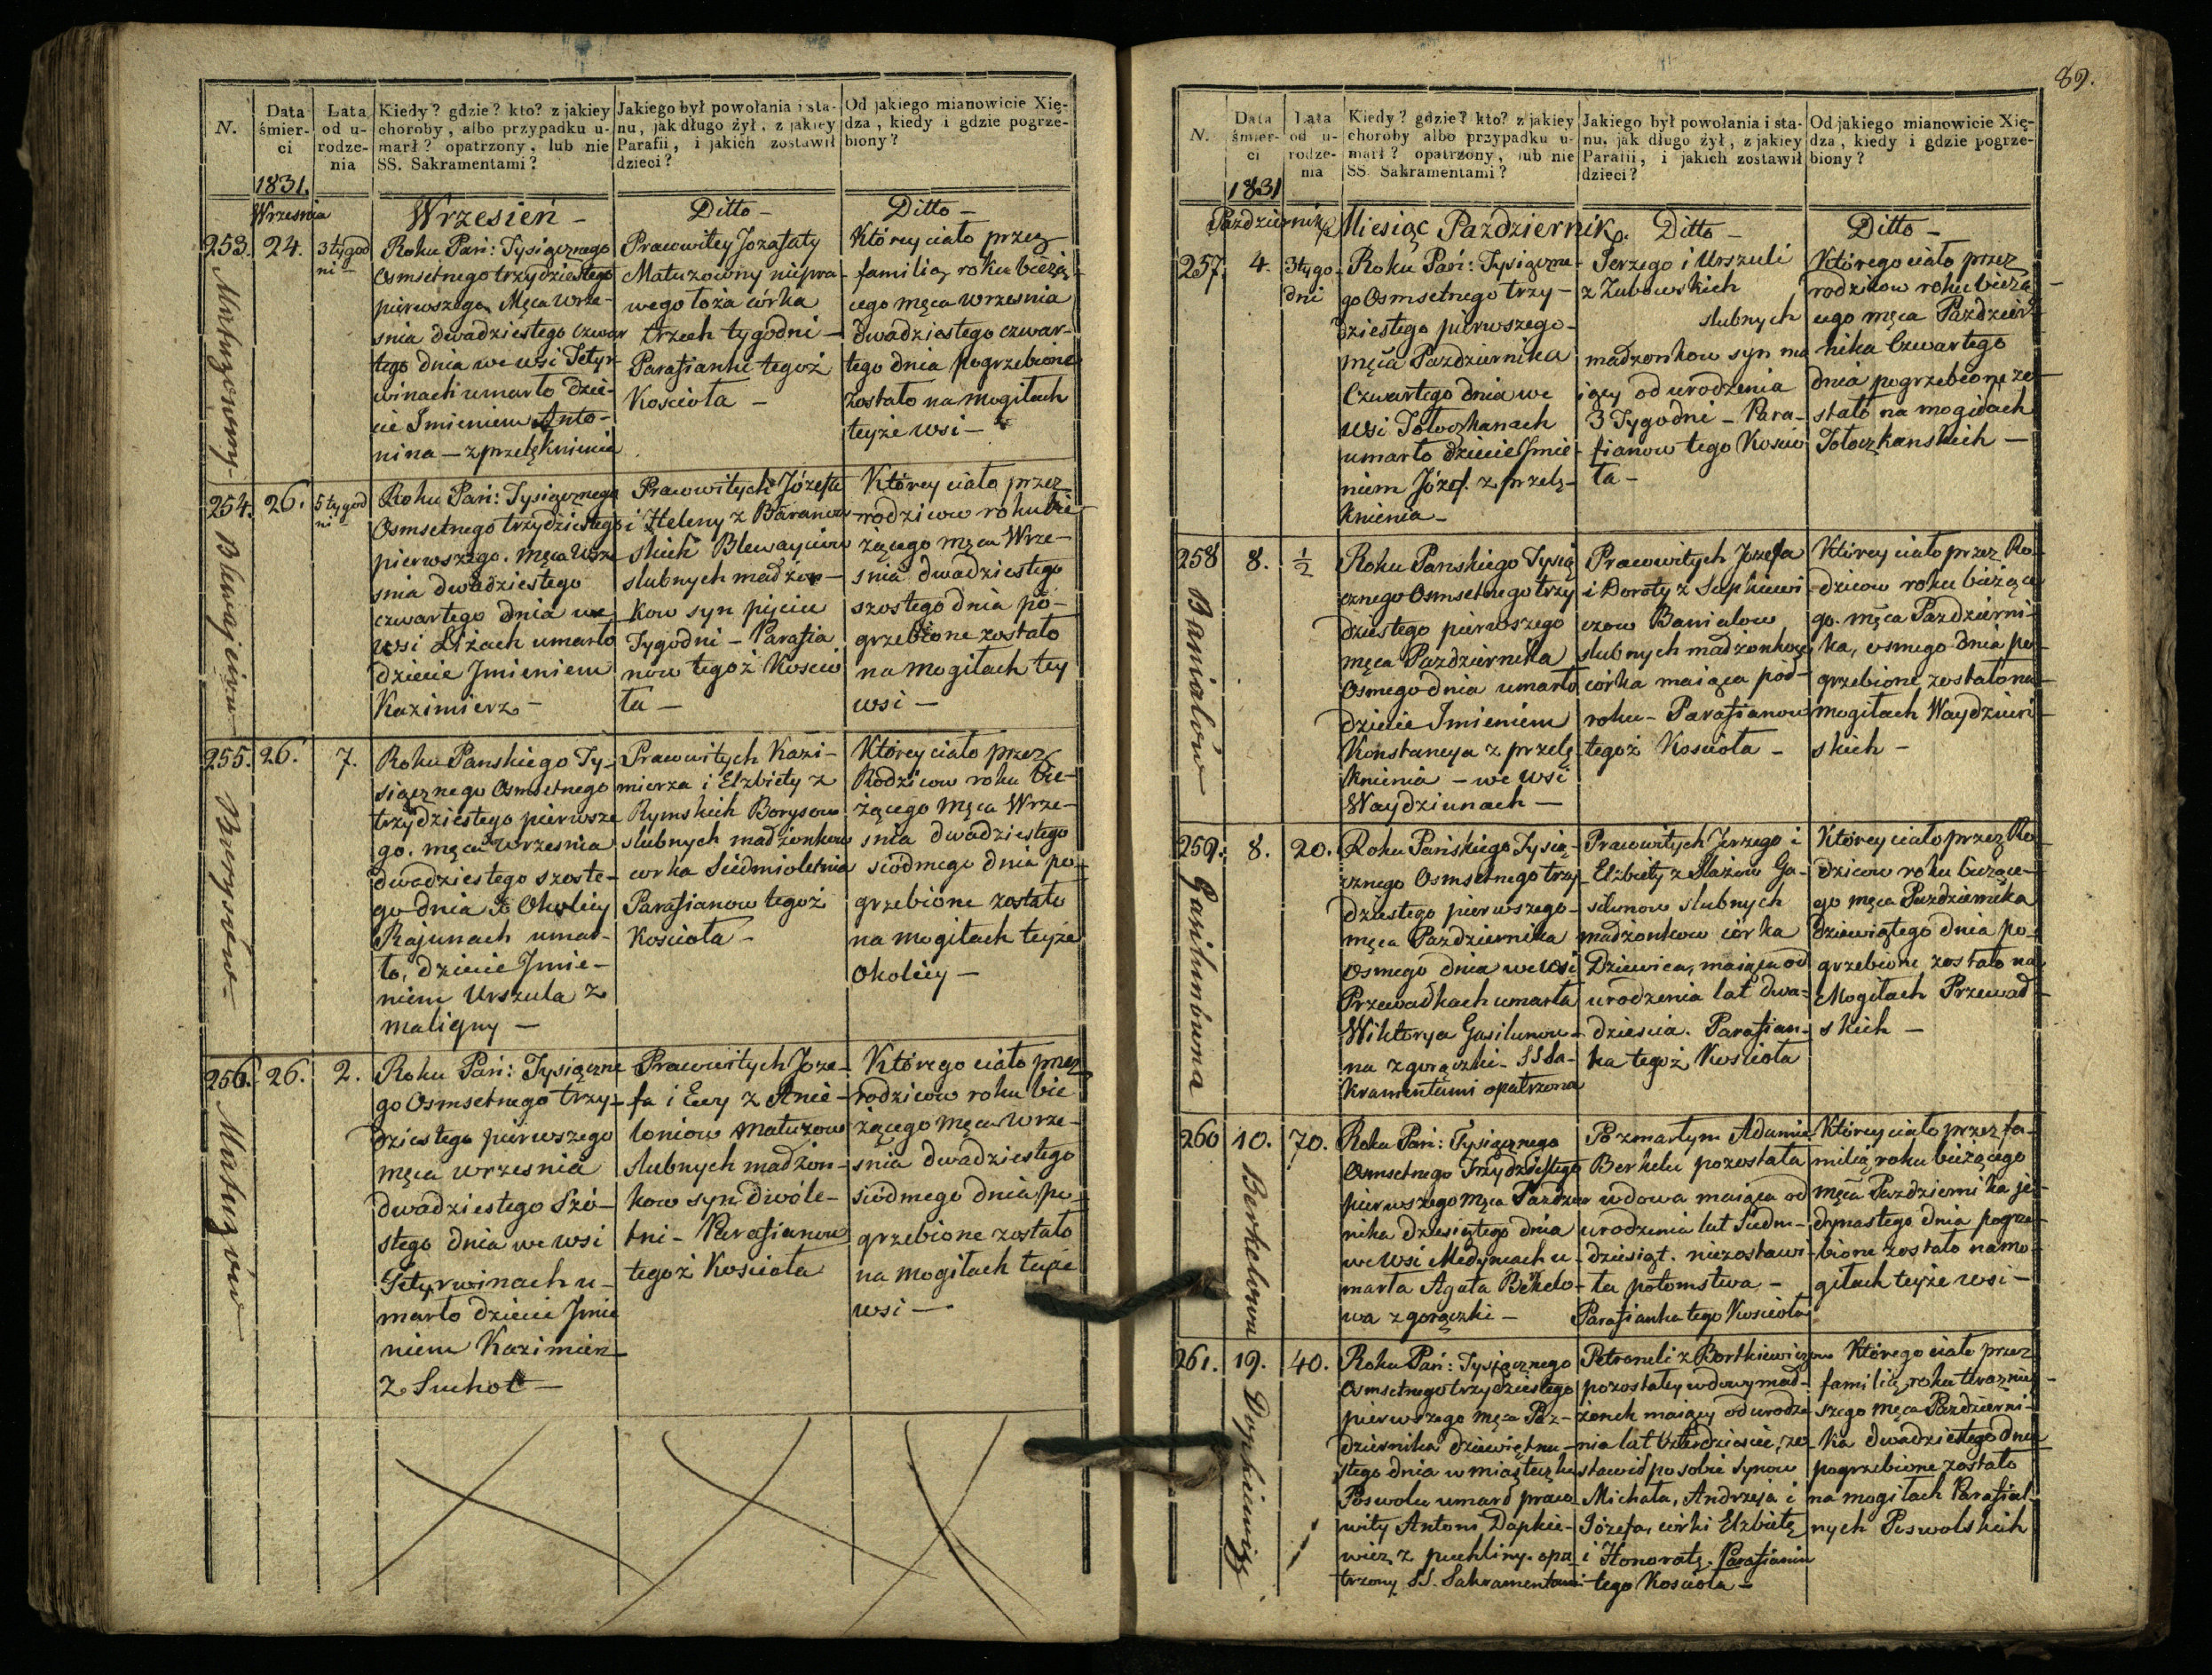 N.
Data śmier-ci
Lata od u-rodze-nia
Kiedy? gdzie? kto? z jakiey
choroby, albo przypadku u-
marł? opatrzony, lub nie
SS. Sakramentami?
Jakiego był powołania i sta-
nu, jak długo żył, z jakiey
Parafii, i jakich zostawił
dzieci?
Od jakiego mianowicie Xię-
dza, kiedy i gdzie pogrze-
biony?
1831.
Wrzesnia
Wrzesień -
Ditto -
Ditto -
253.
24.
3 tygod
ni -
Matuzowny -
Roku Pań: Tysiącznego
Osmsetnego trzydziestego
pierwszego Męca Wrze-
snia dwadziestego czwar
tego dnia we wsi Tetyr-
winach umarło dzie-
cie Imieniem Anto-
nina - z przelęknienia
Prawowitey Jozafaty
Matuzowny niepra-
wego łoża córka
trzech tygodni -
Parafianki tegoż
Kościoła -
Którey ciało przez
familią roku bieżą-
cego męca wrzesnia
dwadziestego czwar-
tego dnia pogrzebione
zostało na mogiłach
teyże wsi -
254.
26.
5 tygod
ni
Blewajciów -
Roku Pań: Tysiącznego
Osmsetnego trzydziestego
pierwszego. męca Wrze
snia dwadziestego
czwartego dnia we
wsi Liżach umarło
dziecie Jmieniem
Kazimierz -
Prawowitych Józefa
i Heleny z Baranow
skich Blewayciow
slubnych madżon-
kow syn pięciu
Tygodni - Parafia
now tegoż Koscio
ła -
Którey ciało przez
rodzicow roku bie
żącego męca Wrze-
snia dwadziestego
szostego dnia po-
grzebione zostało
na mogiłach tey
wsi -
255.
26.
7.
Borysów -
Roku Panskiego Ty-
siącznego Osmsetnego
trzydziestego pierwsze
go. męca wrzesnia
dwadziestego szoste-
go dnia w Okolicy
Rajunach umar-
ło, dziecie Jmie-
niem Urszula z
maligny -
Prawowitych Kazi-
mierza i Elzbiety z
Rymskich Borysow
slubnych madżonkow
corka Siedmioletnia
Parafianow tegoż
Kosciola -
Którey ciało przez
Rodzicow roku bie-
żącego męca Wrze-
snia dwadziestego
siodmego dnia po-
grzebione zostało
na mogiłach teyże
Okolicy -
256.
26.
2.
Matuzów
Roku Pań: Tysiączne
go Osmsetnego trzy-
dziestego pierwszego
męca wrzesnia
dwadziestego Szó-
stego dnia we wsi
Tetyrwinach u-
marło dziecie Jmie
niem Kazimierz
z Suchot -
Prawowitych Joze-
fa i Ewy z Anie-
loniow Matuzow
slubnych madżon-
kow syn dwóle-
tni - Parafianow
tegoż Kosciola
Którego ciało przez
rodzicow roku bie
żącego męca Wrze-
snia dwadziestego
siódmego dnia po-
grzebione zostało
na mogiłach teyże
wsi -
89.
N.
Data śmier-ci
Lata od u-rodze-nia
Kiedy? gdzie? kto? z jakiey
choroby albo przypadku u-
marł? opatrzony, lub nie
SS. Sakramentami?
Jakiego był powołania i sta-
nu, jak długo żył, z jakiey
Parafii, i jakich zostawił
dzieci?
Od jakiego mianowicie Xię-
dza, kiedy i gdzie pogrze-
biony?
1831
Pazdziernika
Miesiąc Pazdziernik.
Ditto -
Ditto -
257.
4.
3 tygo-
dni
Roku Pań: Tysiączne-
go Osmsetnego trzy-
dziestego pierwszego -
męca Pazdziernika
Czwartego dnia we
wsi Tołoczkanach
umarło dziecie Jmie
niem Józef. z przelę-
knienia -
Jerzego i Urszuli
z Zubowskich
slubnych
madzonkow syn ma
iący od urodzenia
3 Tygodni - Para-
fianow tego Koscio
ła -
Którego ciało przez
rodzicow roku bieżą-
cego męca Pazdzier-
nika Czwartego
dnia pogrzebione zo-
stało na mogiłach
Tołoczkanskich -
258
8.
½
Banialów
Roku Panskiego Tysią
cznego Osmsetnego trzy
dziestego pierwszego
męca Pazdziernika
Osmego dnia umarło
dziecie Jmieniem
Konstancya z przelę
knienia - we wsi
Waydziunach -
Prawowitych Jozefa
i Doroty z Supkiewi
czow Banialow
slubnych madżonkow
córka maiąca pół-
roku - Parafianow
tegoż Kosciola -
Którey ciało przez Ro-
dzicow roku bieżące
go. męca Pazdzierni-
ka, osmego dnia po-
grzebione zostało na
mogiłach Waydziun-
skich -
259.
8.
20.
Gasilunówna
Roku Pańskiego Tysią-
cznego Osmsetnego trzy
dziestego pierwszego -
męca Pazdziernika
Osmego dnia we wsi
Przewadkach umarła
Wiktorya Gasilunow-
na z gorączki - SS Sa-
kramentami opatrzona
Prawowitych Jerzego i
Elzbiety z Ślażow Ga-
silunow slubnych
madżonkow córka
Dziewica, maiąca od
urodzenia lat dwa-
dziescia. Parafian-
ka tegoż Kosciola
Którey ciało przez Ro-
dzicow roku bieżące-
go męca Pazdziernika
dziewiątego dnia po-
grzebione zostało na
Mogiłach Przewad-
skich -
260
10.
70.
Berkelowa
Roku Pań: Tysiącznego
Osmsetnego Trzydziestego
pierwszego męca Pazdzier
nika dziesiątego dnia
we wsi Medyniach u
marła Agata Bekelo-
wa z gorączki -
Po zmarłym Adamie
Berkelu pozostała
wdowa maiąca od
urodzenia lat Siedm-
dziesiąt. niezostawi-
ła potomstwa -
Parafianka tego Kosciola
Którey ciało przez fa-
milią roku bieżącego
męca Pazdziernika je-
dynastego dnia pogrze-
bione zostało na mo-
giłach teyże wsi -
261.
19.
40.
Dopkiewicz
Roku Pań: Tysiącznego
Osmsetnego trzydziestego
pierwszego męca Paz-
dziernika dziewiętna-
stego dnia w miasteczku
Poswolu umarł prawo-
wity Antoni Dapkie-
wicz z puchliny. opa-
trzony SS. Sakramentami
Petroneli z Bortkiewiczow
pozostałey wdowy mał-
żonek maiący od urodze
nia lat czterdziescie, zo-
stawił po sobie synow
Michała, Andrzeja i
Józefa, córki Elzbietę
i Honoratę. Parafianin
tego Kosciola -
Którego ciało przez
familią roku teraźniey-
szego męca Pazdzierni-
ka dwadziestego dnia
pogrzebione zostało
na mogiłach Parafial-
nych Poswolskich